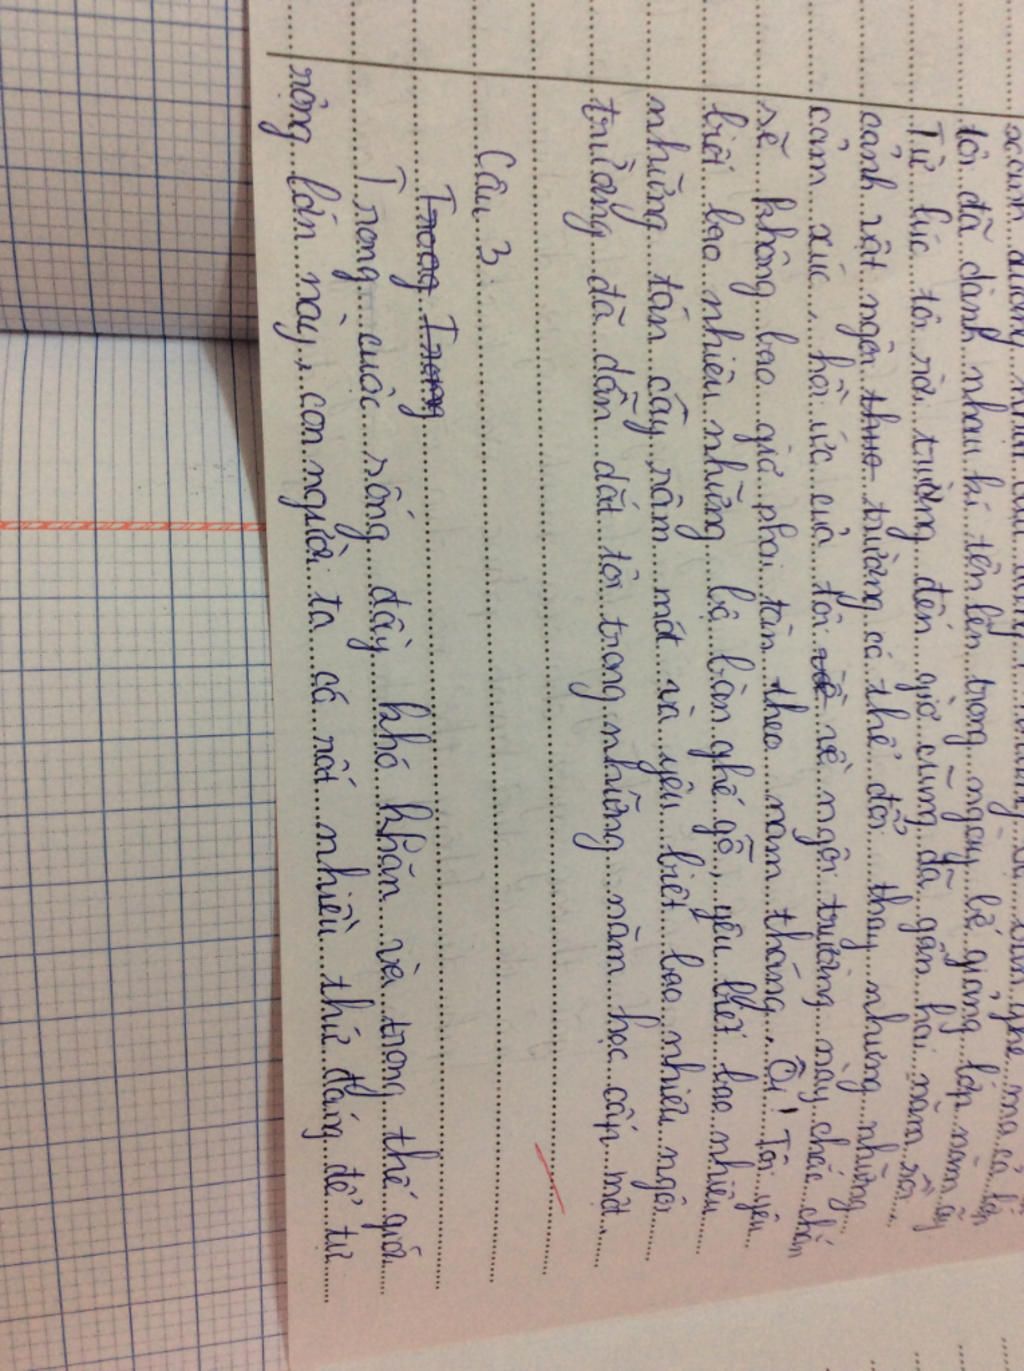 tôi đã dành nhau kí tên lên trong ngày bế giảng lớp năm ấy
Từ lúc tôi rời trường đến giờ cũng đã gần hai năm rồi.
cảnh vật ngôi thuo trường có thể đổi thay nhưng những
cảm xúc, hồi ức của tôi về về ngôi trường này chắc chắn
sẽ không bao giờ phai tàn theo năm tháng. Ôi! Tôi yêu
biết bao nhiêu những bộ bàn ghế gỗ, yêu biết bao nhiêu
những tán cây râm mát và yêu biết bao nhiêu ngôi
trường đã dẫn dắt tôi trong những năm học cấp một.
Câu 3:
Trong Trong
Trong cuộc sống đầy khó khăn và trong thế giới
rộng lớn này, con người ta có rất nhiều thứ đáng để tự